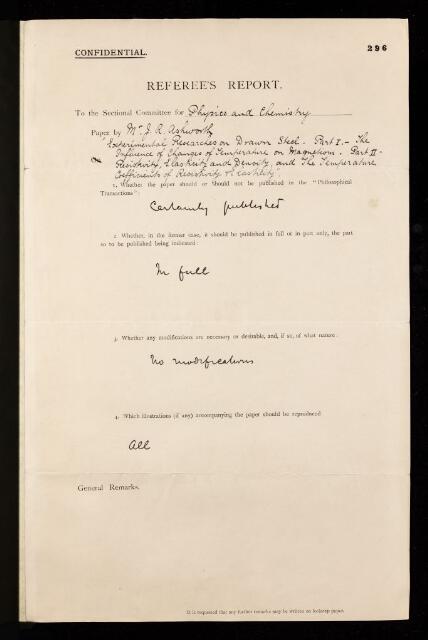 CONFIDENTIAL.
296
REFEREE'S REPORT.
To the Sectional Committee for Physics and Chemistry
Paper by Mr. J. R. Ashworth
"Experimental Researches on Drawn Steel. Part I. - The
Influence of Changes of Temperature on Magnetism. Part II -
Resistivity, Elasticity and Density, and the Temperature
Coefficients of Resistivity & Elasticity"
1. Whether the paper should or should not be published in the "Philosophical
Transactions":
Certainly published
2. Whether, in the former case, it should be published in full or in part only, the part
so to be published being indicated:
In full
3. Whether any modifications are necessary or desirable, and, if so, of what nature:
No modifications
4. Which illustrations (if any) accompanying the paper should be reproduced
All
General Remarks.
It is requested that any further remarks may be written on foolscap paper.